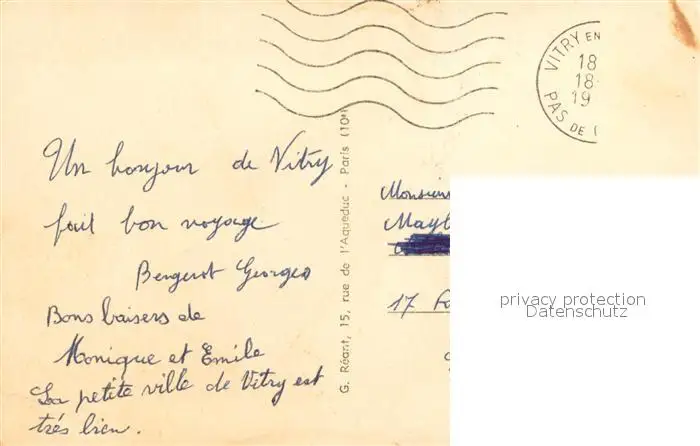 Un bonjour de Vitry
fait bon voyage
Bengerot Georges
Bons baisers de
Monique et Emile
La petite ville de Vitry est
très bien.
G. Réant, 15, rue de l'Aqueduc - Paris (10e)
VITRY EN
18
18
19
PAS DE
Monsieur
17
privacy protection
Datenschutz